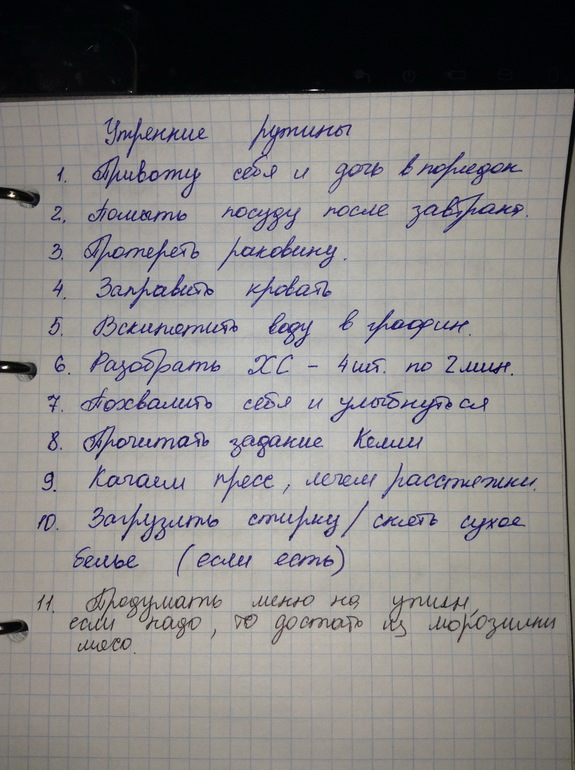 Утренние рутины
1. Привожу себя и дочь в порядок
2. Помыть посуду после завтрака.
3. Протереть раковину.
4. Заправить кровать
5. Вскипятить воду в графин.
6. Разобрать ХС - 4 шт. по 2 мин.
7. Похвалить себя и улыбнуться
8. Прочитать задание Келли
9. Качаем пресс, лечем растяжки.
10. Загрузить стирку/снять сухое
белье (если есть)
11. Продумать меню на ужин,
если надо, то достать из морозилки
мясо.